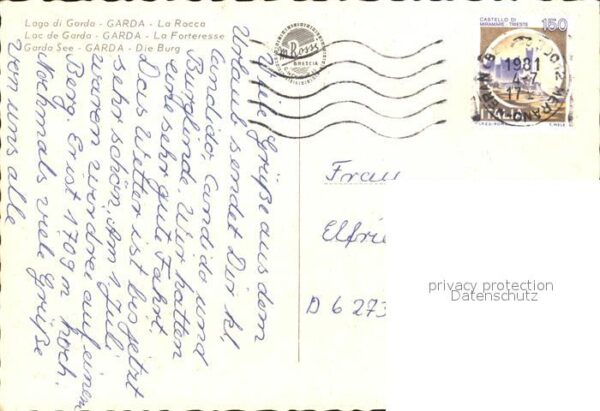 Lago di Garda - GARDA - La Rocca
Lac de Garda - GARDA - La Forteresse
Garda See - GARDA - Die Burg
Rossi
BRESCIA
CASTELLO DI
MIRAMARE · TRIESTE
150
ITALIA
1981
4-7
17
MERANO
Viele Grüße aus dem
Urlaub sendet Dir kl.
Candido, Candido und
Burglinde. Wir hatten
eine sehr gute Fahrt.
Das Wetter ist bis jetzt
sehr schön. Am 1. Juli
waren wir drei auf einem
Berg. Er ist 1709 m hoch.
Nochmals viele Grüße
von uns alle
Frau
Elfrie
D 6 273
privacy protection
Datenschutz